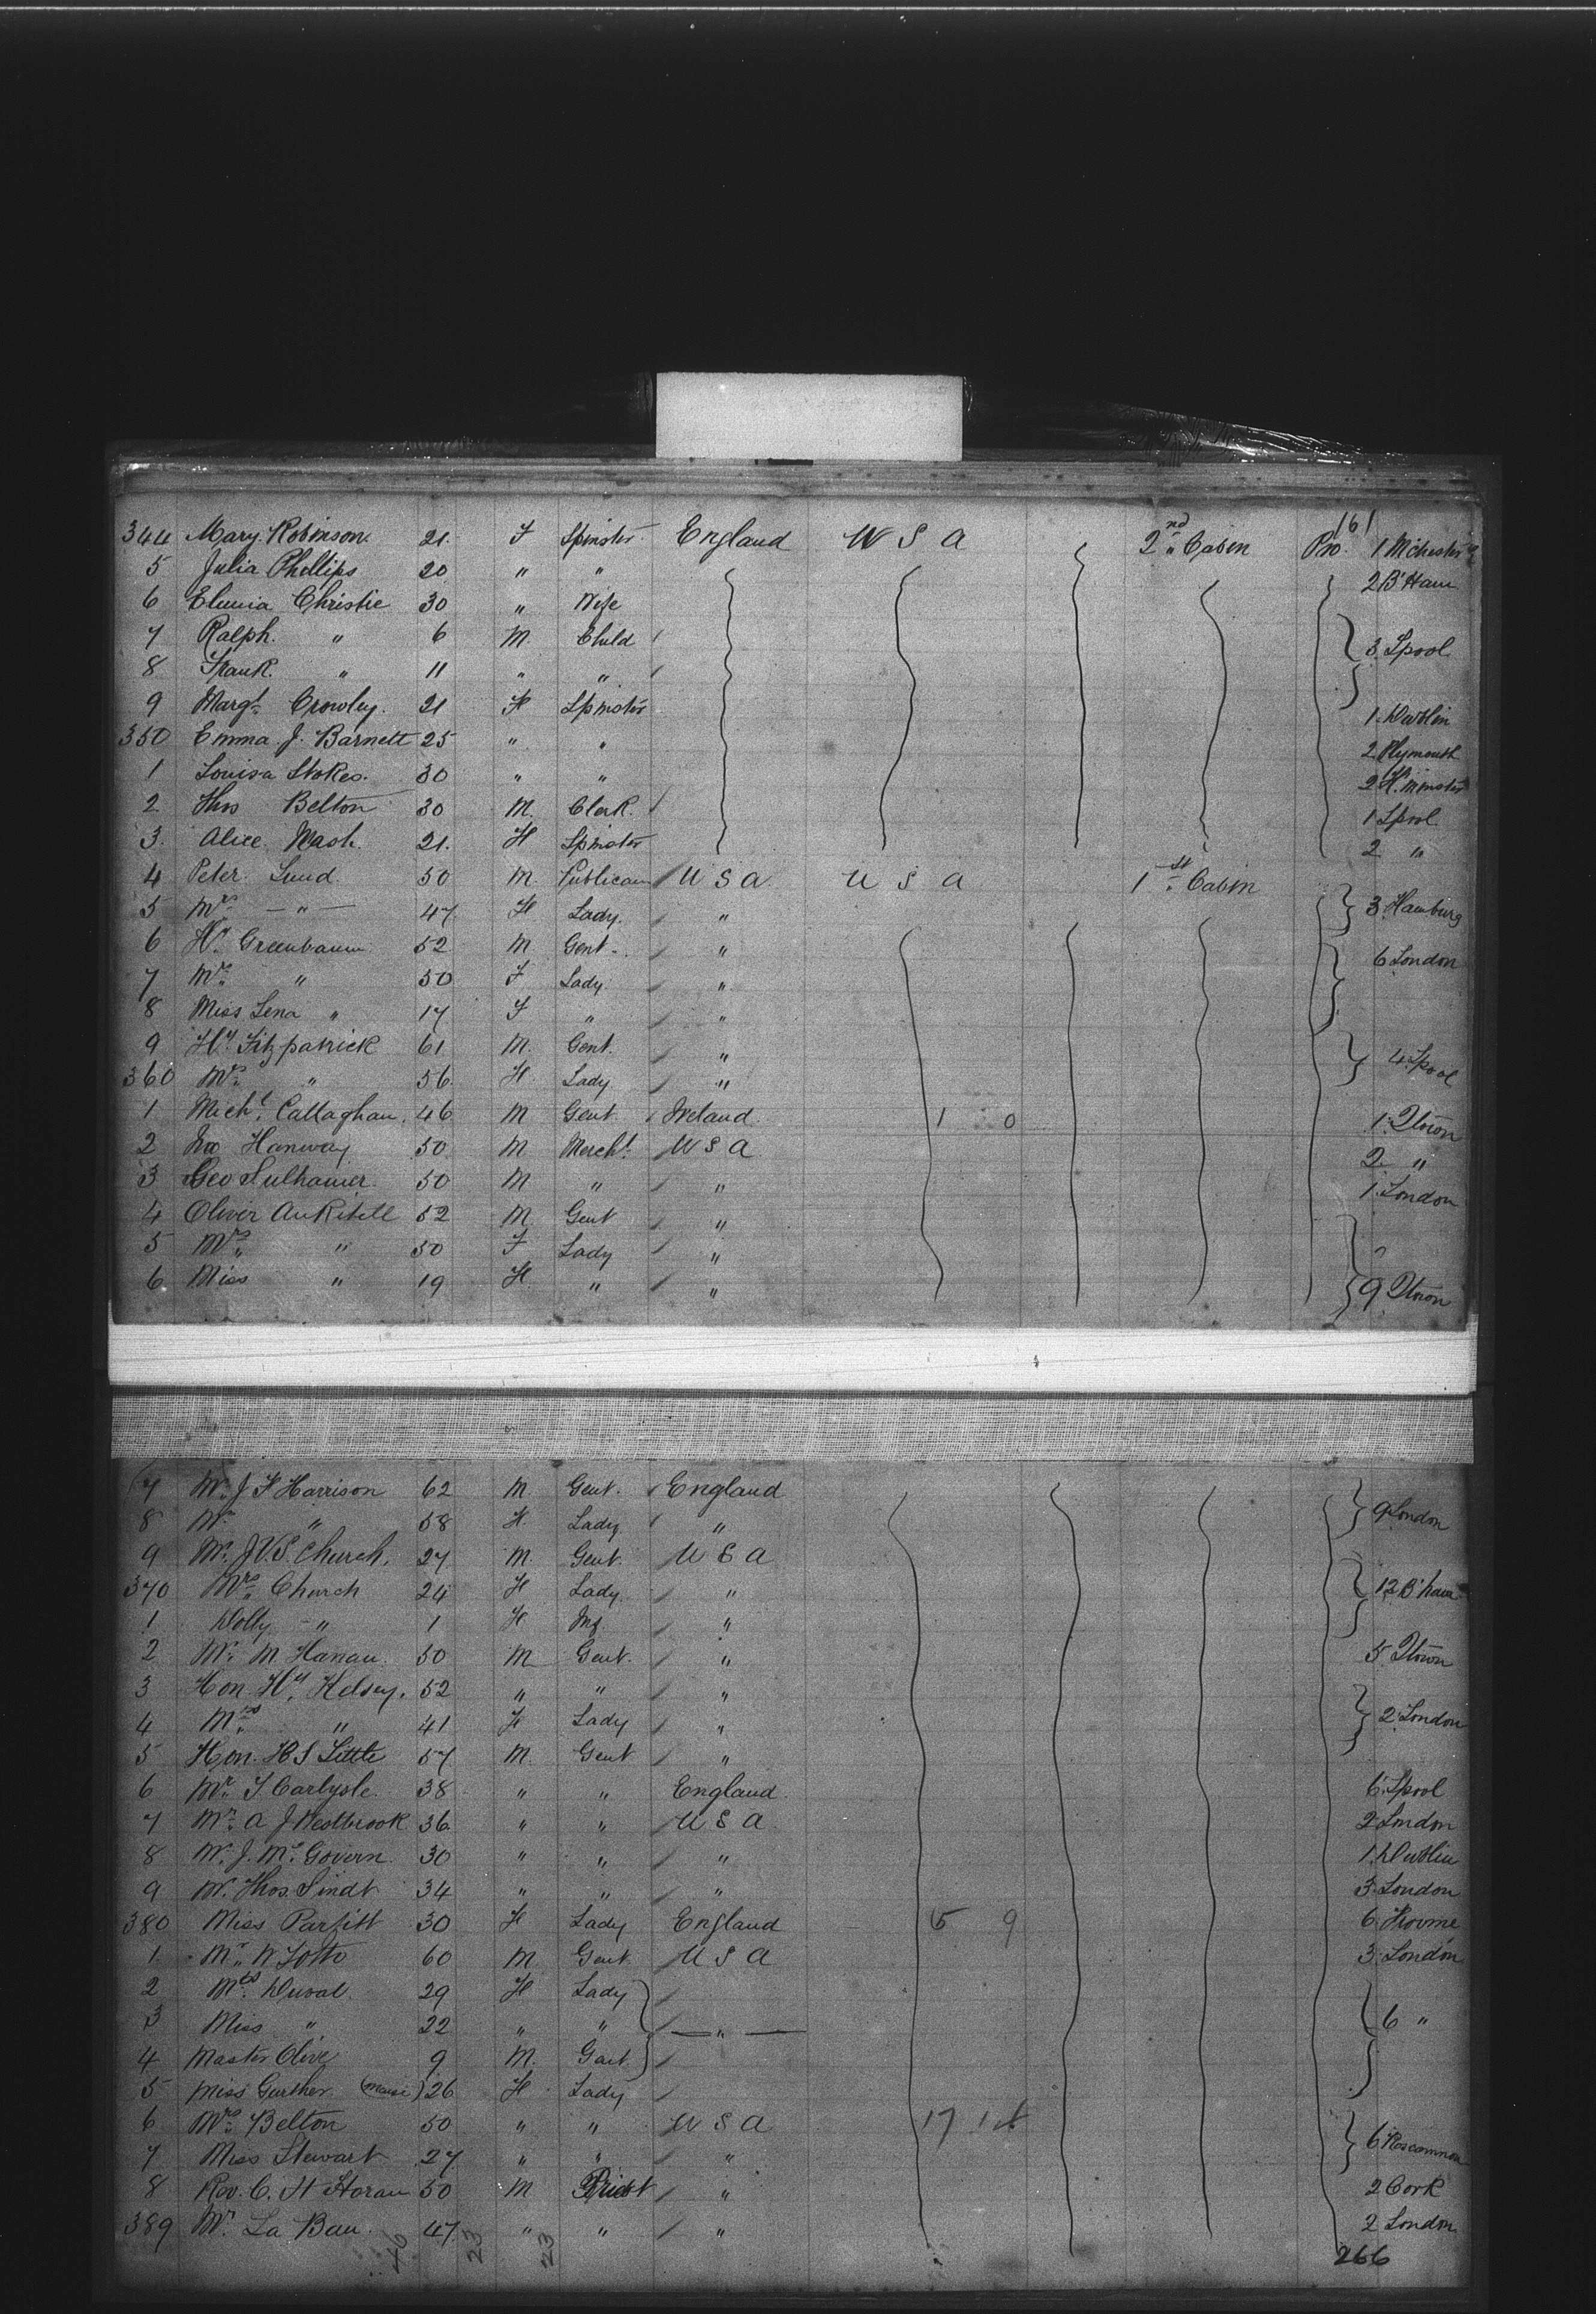 161
344 Mary Robinson. 21. F Spinster England U S A 2nd Cabin Pro. 1 Mchester
5 Julia Phillips 20 " " 2 B'Ham
6 Christie 30 " Wife
7 Ralph. " 6 M. Child 3 Lpool
8 Frank. " 11 " "
9 Margt. Crowley. 21 F Spinster 1 Dublin
350 Emma J. Barnett 25 " " 2 Plymouth
1 Louisa Stokes. 30 " " 2
2 Thos Belton 30 M. Clerk. 1 Lpool
3. Alice Nash. 21. F Spinster 2 "
4 Peter Lund. 50 M. Publican U S A U S A 1st Cabin
5 Mrs. — " — 47 F Lady. " 3 Hamburg
6 Hy. Greenbaum 52 M Gent. " 6 London
7 Mrs. " 50 F Lady "
8 Miss Lena " 17 F " "
9 Hy. Fitzpatrick 61 M. Gent. " 4 Lpool
360 Mrs. " 56 F Lady "
1 Michl. Callaghan. 46 M Gent. Ireland 1 0 1 Qtown
2 Jno Hanway 50 M Mercht. U S A 2 "
3 Geo 50 M " " 1 London
4 Oliver 52 M. Gent "
5 Mrs. " 50 F Lady "
6 Miss " 19 F " " 9 Qtown
7 Mr. J F Harrison 62 M. Gent. England 9 London
8 Mrs. " 58 F. Lady "
9 Mr. J.V.S. Church. 27 M. Gent. U S A
370 Mrs. Church 24 F Lady " 12 B'ham
1 Dolly — " 1 F Inf. "
2 Mr. M Hanau. 50 M Gent. " 5 Qtown
3 Hon. Hy. Kelsey. 52 " " "
4 Mrs. " 41 F Lady " 2 London
5 Hon. H S Little 57 M. Gent "
6 Mr. Carlysle. 38 " " England 6 Lpool
7 Mr. A J Westbrook 36 " " U S A 2 London
8 Mr. J. Mc.Govern 30 " " " 1 Dublin
9 Mr. Thos. 34 " " " 3 London
380 Miss Parfitt 30 F Lady England 15 9 6 Froome
1. Mr. W Lotto 60 M. Gent. U S A 3 London
2 Mrs. Duval. 29 F Lady
3 Miss " 22 " " — " — 6 "
4 Master Olive 9 M. Gent.
5 Miss 26 F Lady
6 Mrs. Belton 50 " " U S A 17 18
7 Miss Stewart 27 " " " 6 Roscommon
8 Rev. C. H Horan 50 M Priest " 2 Cork
389 Mr. La Bau. 47 " " " 2 London
46 23 23 266